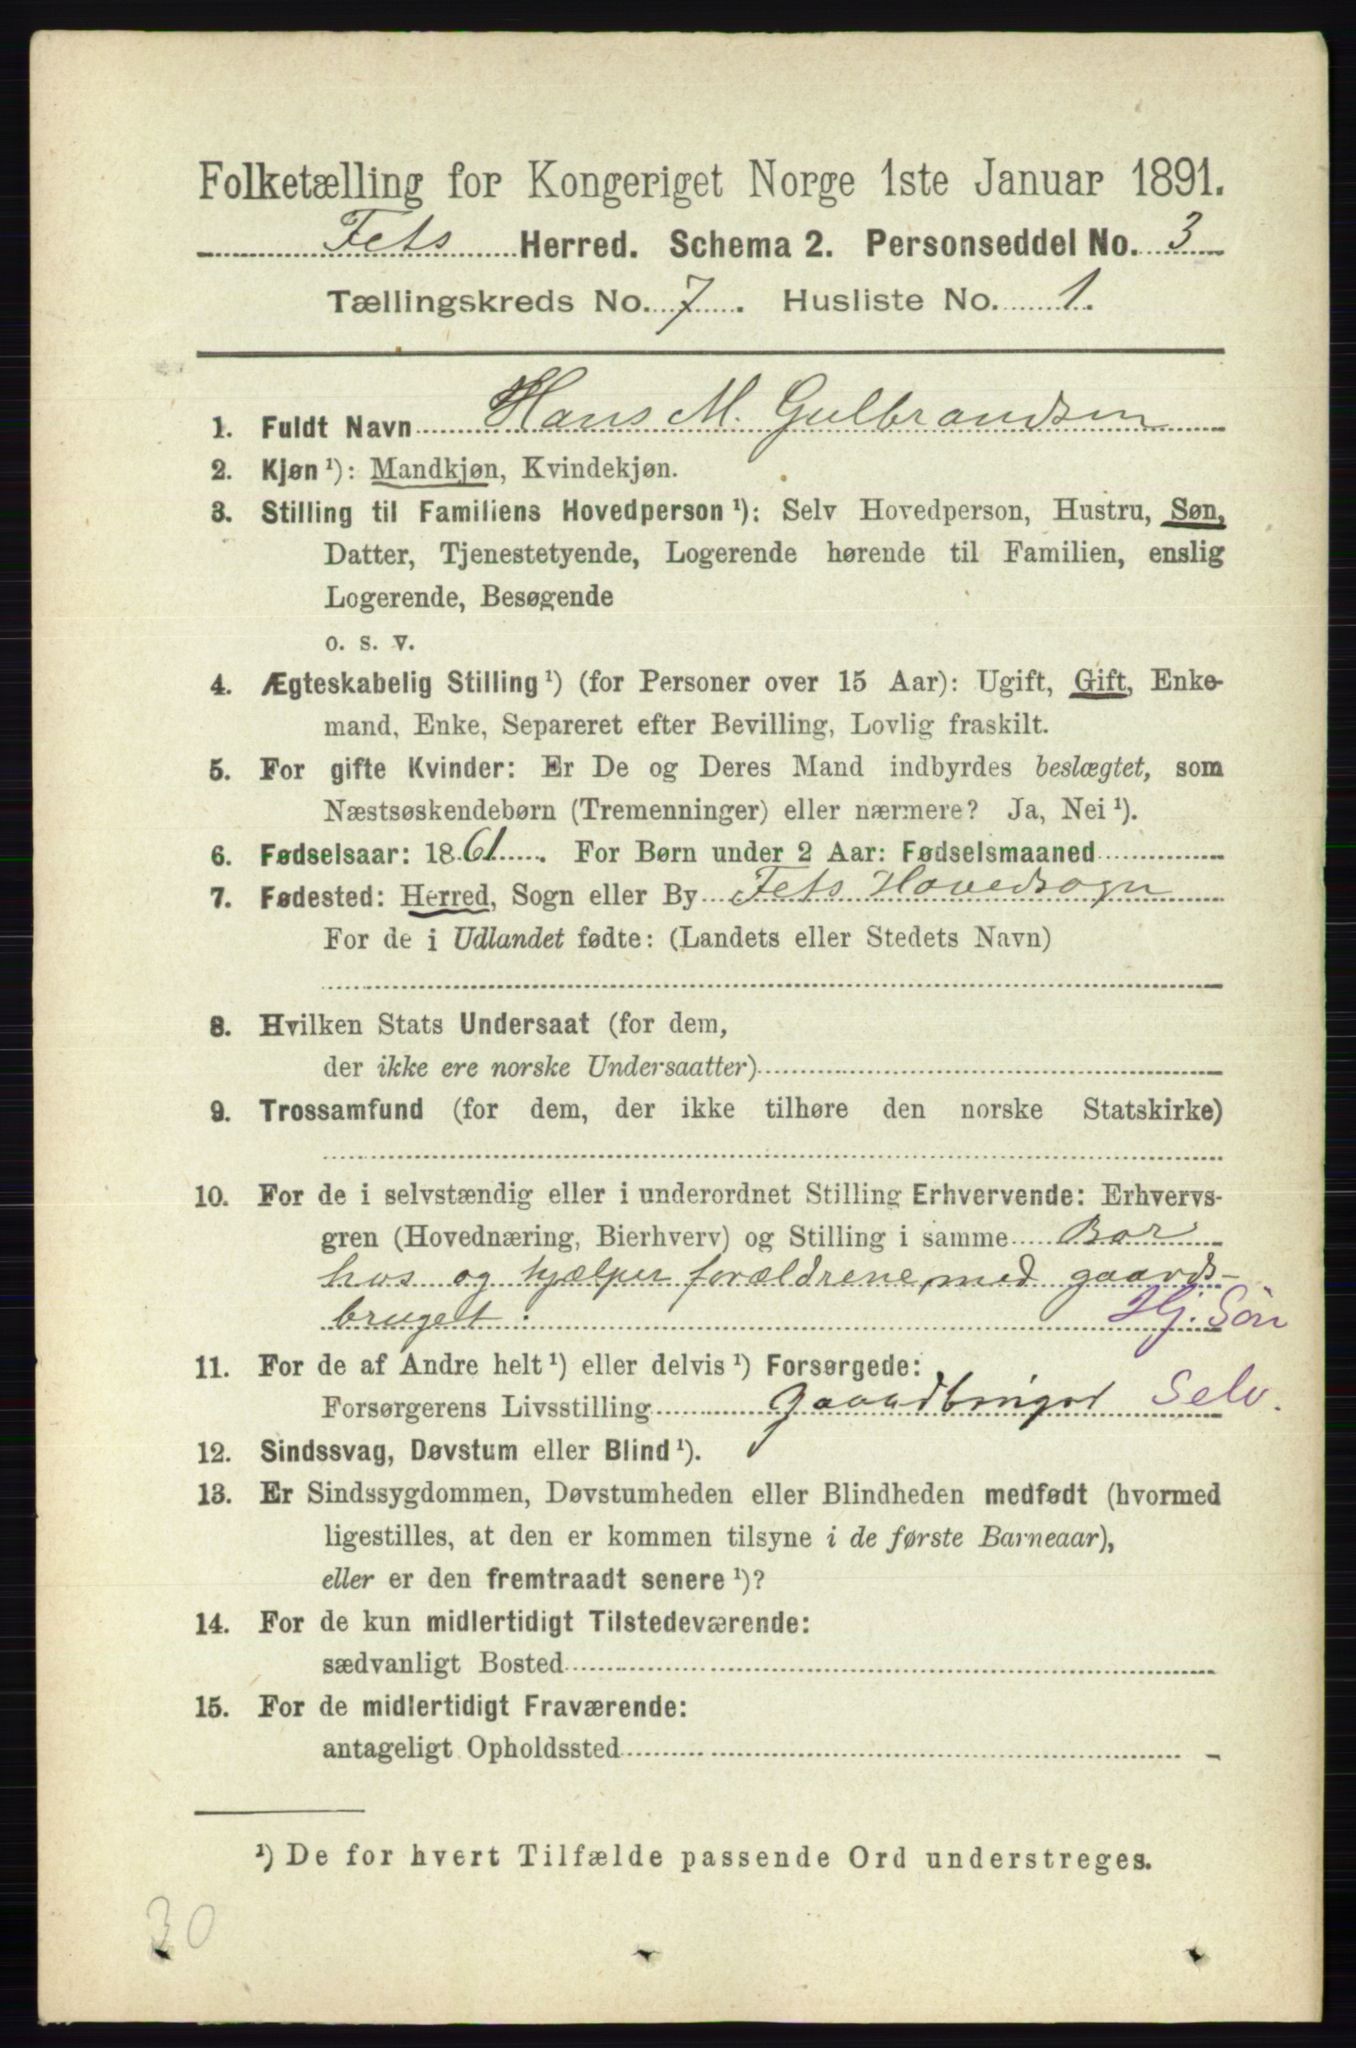 Folketælling for Kongeriget Norge 1ste Januar 1891.
Fets Herred. Schema 2. Personseddel No. 3
Tællingskreds No. 7. Husliste No. 1.
1. Fuldt Navn Hans M. Gulbrandsen
2. Kjøn ¹): Mandkjøn, Kvindekjøn.
3. Stilling til Familiens Hovedperson ¹): Selv Hovedperson, Hustru, Søn,
Datter, Tjenestetyende, Logerende hørende til Familien, enslig
Logerende, Besøgende
o. s. v.
4. Ægteskabelig Stilling ¹) (for Personer over 15 Aar): Ugift, Gift, Enke-
mand, Enke, Separeret efter Bevilling, Lovlig fraskilt.
5. For gifte Kvinder: Er De og Deres Mand indbyrdes beslægtet, som
Næstsøskendebørn (Tremenninger) eller nærmere? Ja, Nei ¹).
6. Fødselsaar: 1861. For Børn under 2 Aar: Fødselsmaaned
7. Fødested: Herred, Sogn eller By Fets Hovedsogn
For de i Udlandet fødte: (Landets eller Stedets Navn)
8. Hvilken Stats Undersaat (for dem,
der ikke ere norske Undersaatter)
9. Trossamfund (for dem, der ikke tilhøre den norske Statskirke)
10. For de i selvstændig eller i underordnet Stilling Erhvervende: Erhvervs-
gren (Hovednæring, Bierhverv) og Stilling i samme Bor
hos og hjælper forældrene, med gaards-
bruget: Hj. Sön
11. For de af Andre helt ¹) eller delvis ¹) Forsørgede:
Forsørgerens Livsstilling Selv.
12. Sindssvag, Døvstum eller Blind ¹).
13. Er Sindssygdommen, Døvstumheden eller Blindheden medfødt (hvormed
ligestilles, at den er kommen tilsyne i de første Barneaar),
eller er den fremtraadt senere ¹)?
14. For de kun midlertidigt Tilstedeværende:
sædvanligt Bosted
15. For de midlertidigt Fraværende:
antageligt Opholdssted
¹) De for hvert Tilfælde passende Ord understreges.
30